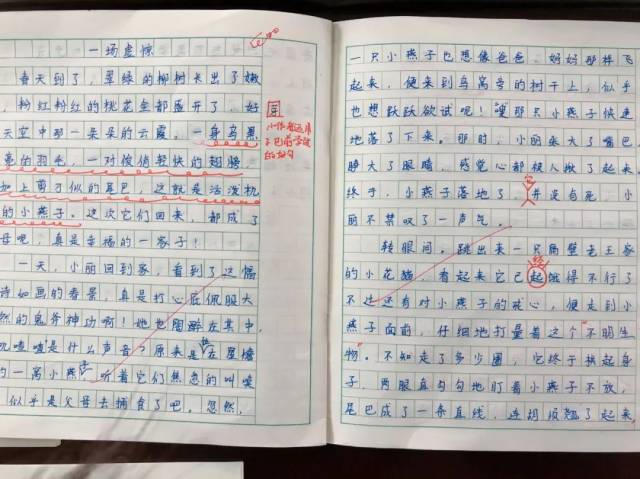 一场虚惊
春天到了，翠绿的柳树长出了嫩
，粉红粉红的桃花全都盛开了，好
天空中那一朵朵的云霞。一身乌黑
亮的羽毛，一对俊俏轻快的翅膀
加上剪刀似的尾巴，这就是活泼机
的小燕子。这次它们回来，都成了
母呢，真是幸福的一家子！
一天，小丽回到家，看到了这幅
诗如画的春景，真是打心底佩服大
然的鬼斧神功啊！她也陶醉在其中，
叽喳喳是什么声音？原来是在屋檐
的一窝小燕 听着它们焦急的叫唤
似乎是父母去捕食了吧。忽然，
一只小燕子也想像爸爸、妈妈那样飞
起来，便来到鸟窝旁的树干上，似乎
也想跃跃欲试呢！ 那只小燕子快速
地落了下来。那时，小丽张大了嘴巴，
睁大了眼睛，感觉心都被人揪了起来。
终于，小燕子落地了，它并没有死，小
丽不禁叹了一声气。
转眼间，跳出来一只隔壁老王家
的小花猫，看起来它已 起饿得不行了
不过还有对小燕子的戒心，便走到小
燕子面前，仔细地打量着这个"不明生
物"。不知走了多少圈，它终于拱起身
子，两眼直勾勾地盯着小燕子不放，
尾巴成了一条直线，连胡须翘了起来，